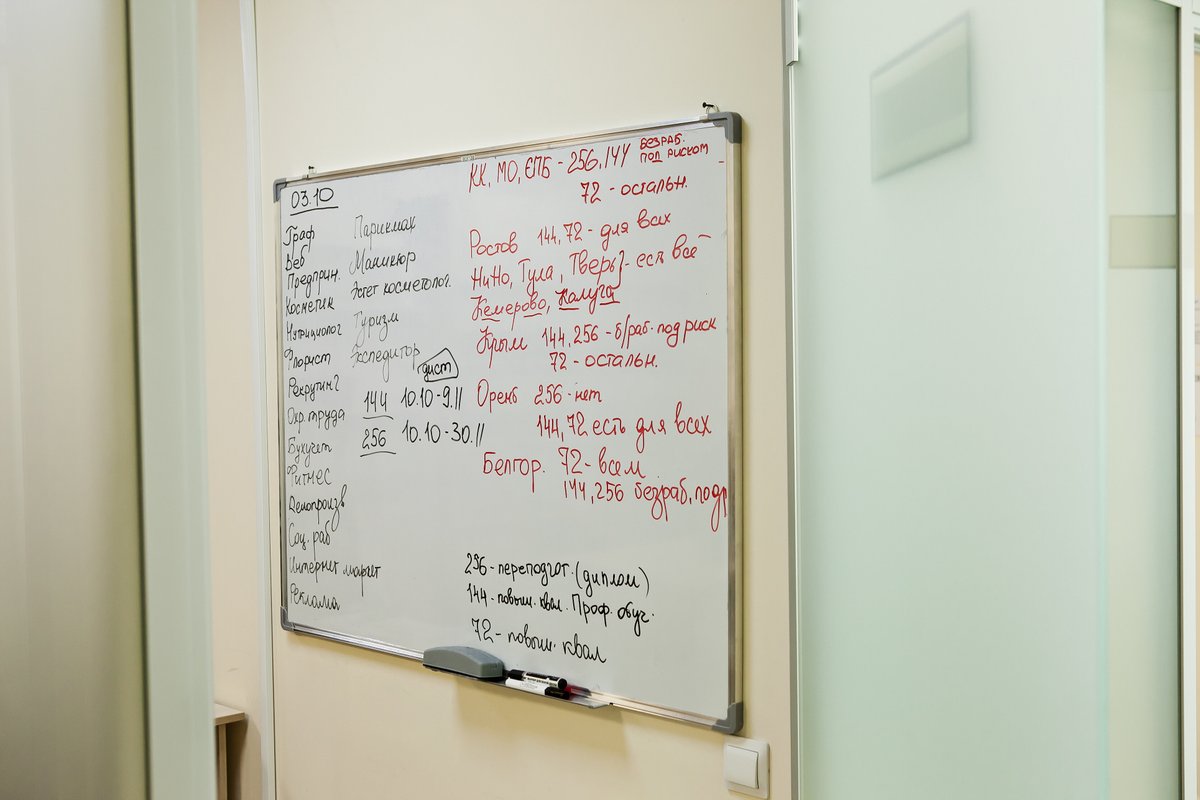 03.10
Граф
Веб
Предприн.
Косметик
Нутрициолог
Флорист
Рекрутинг
Охр. труда
Бухучет
Фитнес
Делопроизв
Соц. раб
Интернет маркет
Реклама
Парикмах
Маникюр
Эстет косметолог.
Туризм
Экспедитор
дист
144 10.10-9.11
256 10.10-30.11
КК, МО, СПБ - 256, 144 БЕЗРАБ.
ПОД РИСКОМ
72 - остальн.
Ростов 144, 72 - для всех
НиНо, Тула, Тверь} - есть все
Кемерово, Калуга
Крым 144, 256 - б/раб. под риск
72 - остальн.
Оренб 256 - нет
144, 72 есть для всех
Белгор. 72 - всем
144, 256 безраб, подр
256 - переподгот. (диплом)
144 - повыш. квал. Проф. обуч.
72 - повыш. квал